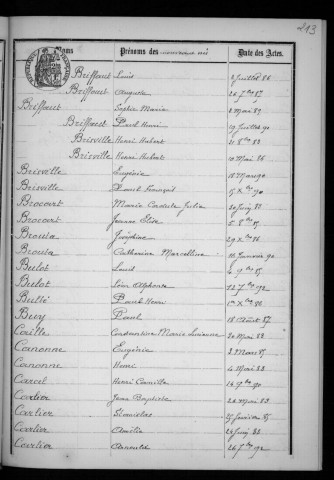 213
Noms Prénoms des Date des Actes.
Briffaut Louis 8 Juillet 86
Briffaut Auguste 26 7bre 87
Briffaut Sophie Maria 8 Mai 89
Briffaut Paul Henri 19 Juillet 90
Brisville Henri Hubert 21 8bre 83
Brisville Henri Hubert 10 Mai 86
Brisville Eugénie 18 Mai 90
Brisville Paul François 15 Xbre 90
Brocart Marie Julia 20 Juin 85
Brocart Jeanne Elise 5 8bre 85
Brouta Joséphine 29 Xbre 86
Brouta Catherine Marcelline 11 Janvier 90
Bulot Louis 2 9bre 85
Bulot Léon Alphonse 22 7bre 92
Bullé Paul Henri 1er Xbre 86
Buvy Paul 18 Août 87
Caille Constantine Marie Lucienne 20 Mai 83
Canonne Eugénie 2 Mars 85
Canonne Henri 4 Mai 88
Carcel Henri Camille 16 9bre 90
Carlier Jean Baptiste 26 Mai 83
Carlier Stanislas 25 Janvier 85
Carlier Amélie 24 Juin 88
Carlier Arnould 26 7bre 92